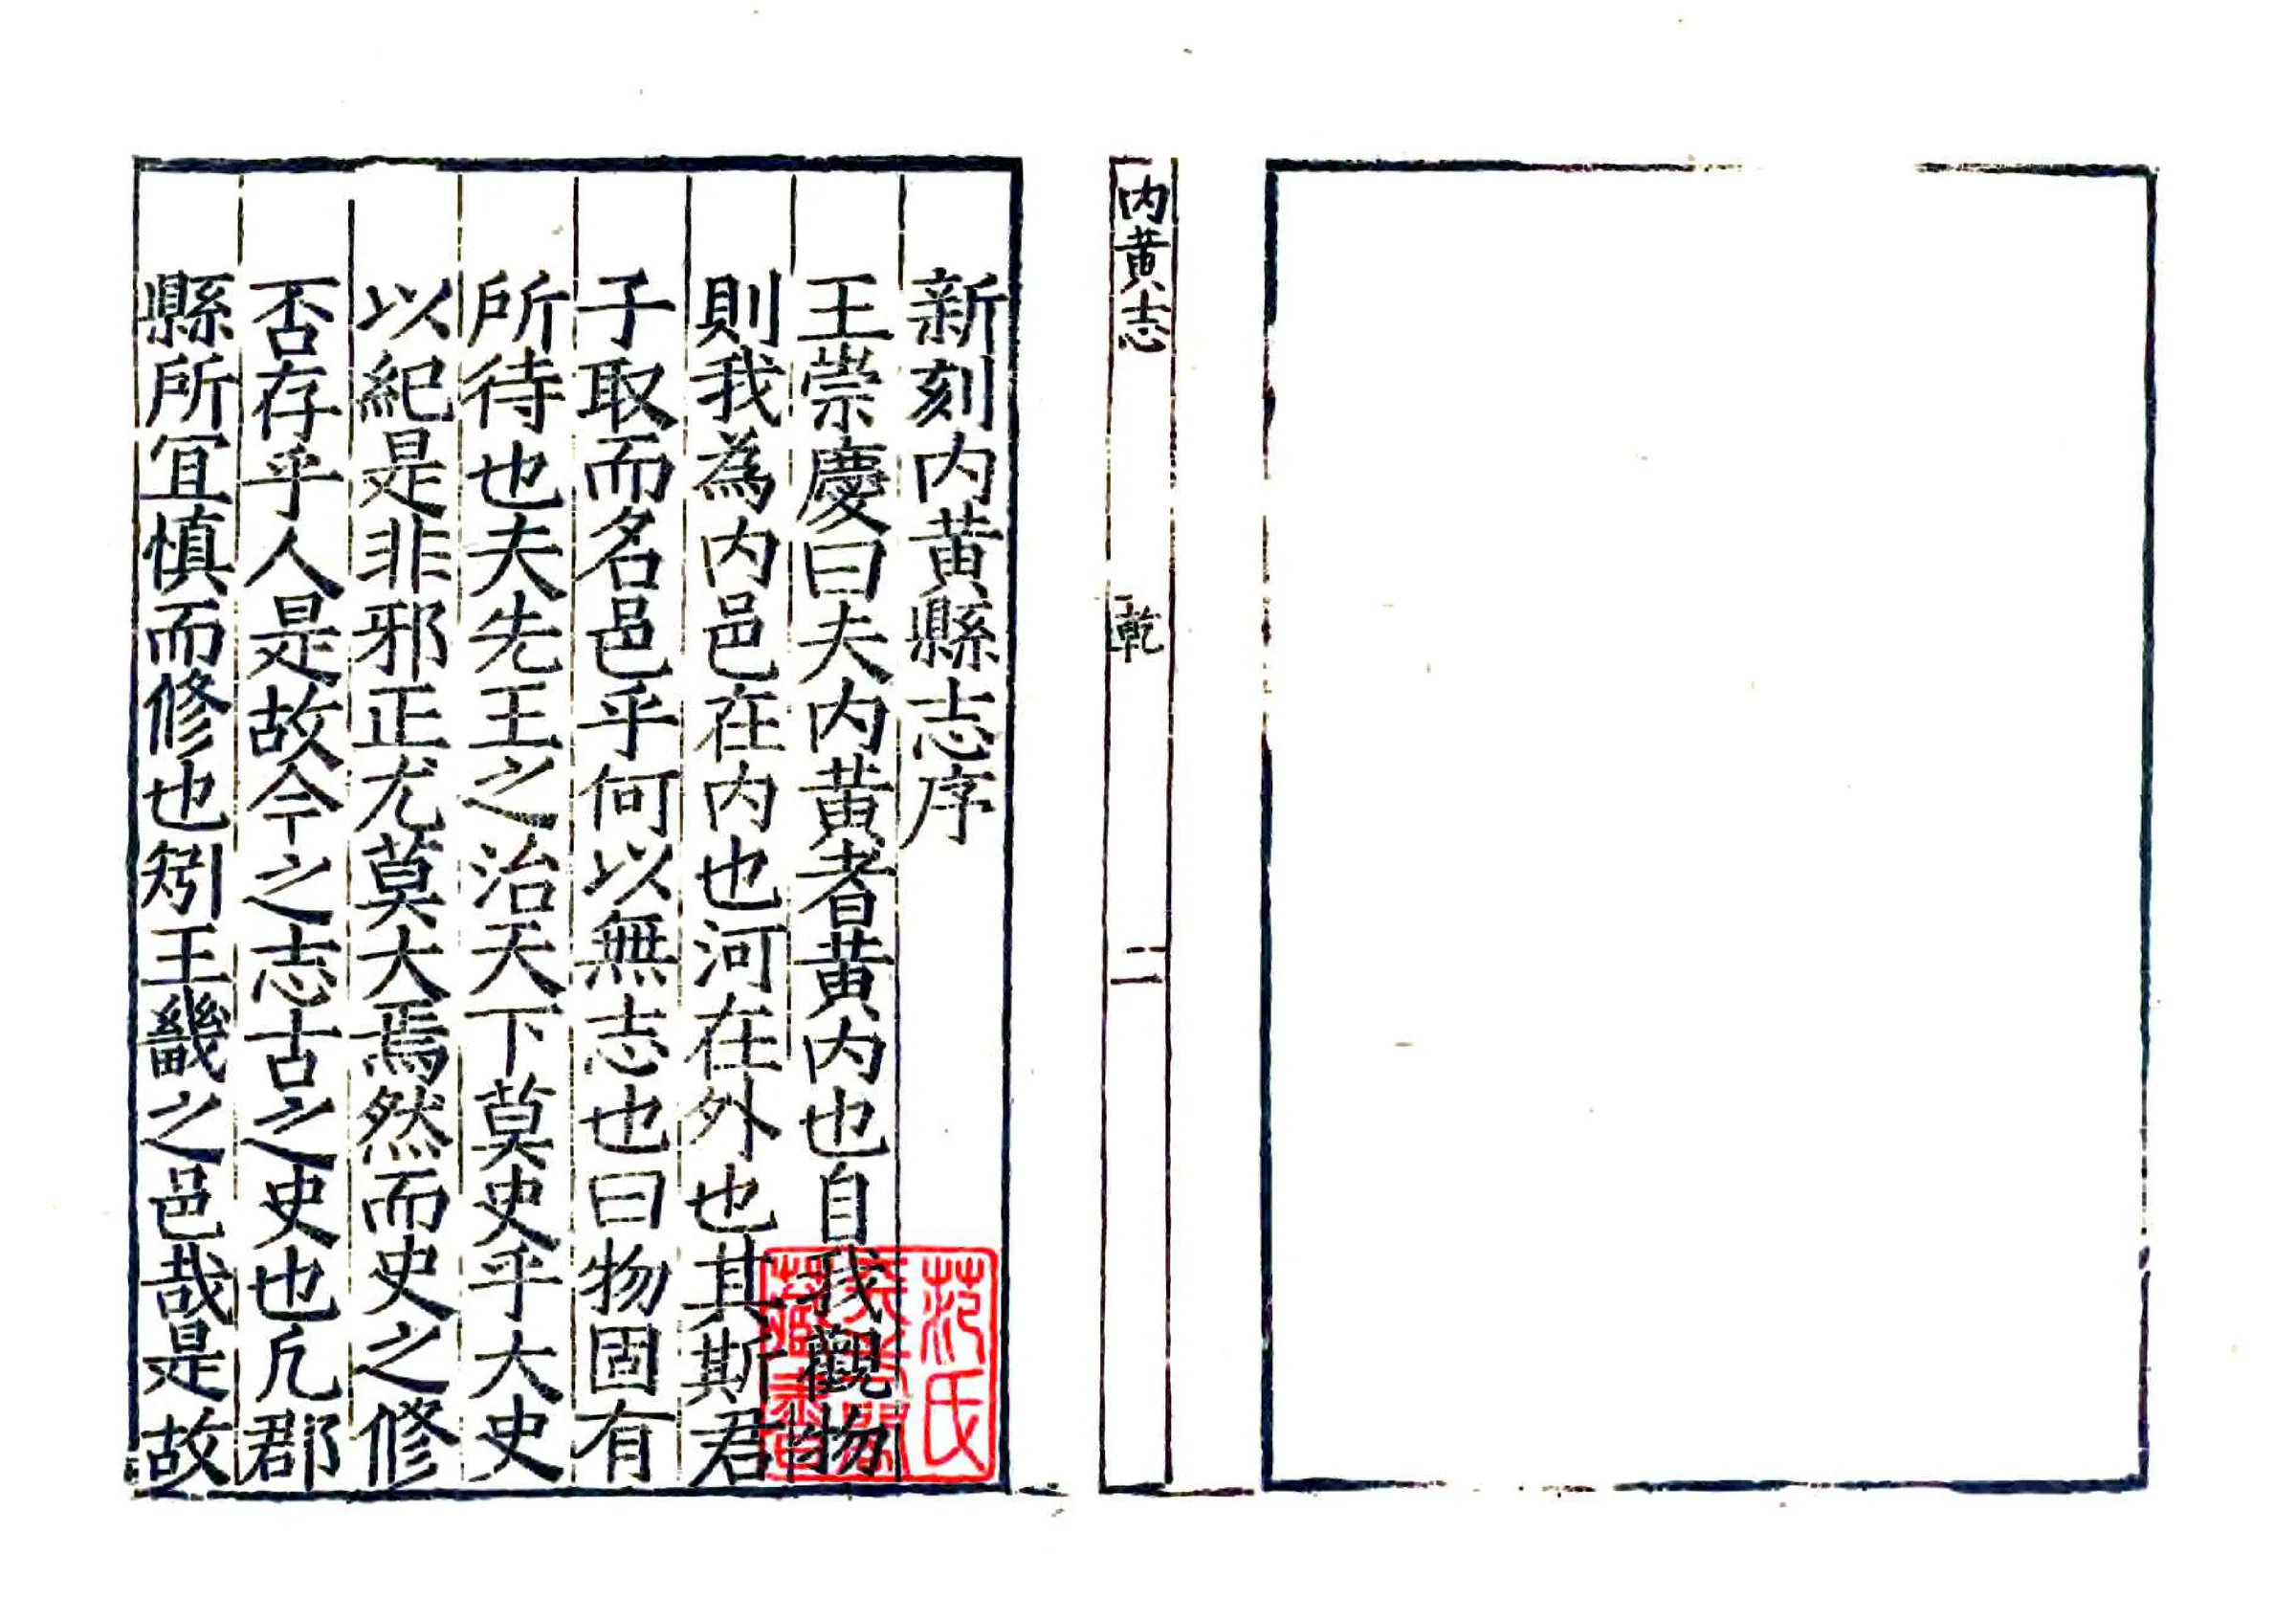 内黄志
乾
二
新刻内黄縣志序
王崇慶曰夫内黄者黄内也自我觀物
則我為内邑在内也河在外也其斯君
子取而名邑乎何以無志也曰物固有
所待也夫先王之治天下莫史乎大史
以紀是非邪正尤莫大焉然而史之修
否存乎人是故今之志古之史也凢郡
縣所冝慎而修也矧王畿之邑哉是故
范氏
天一閣
藏書